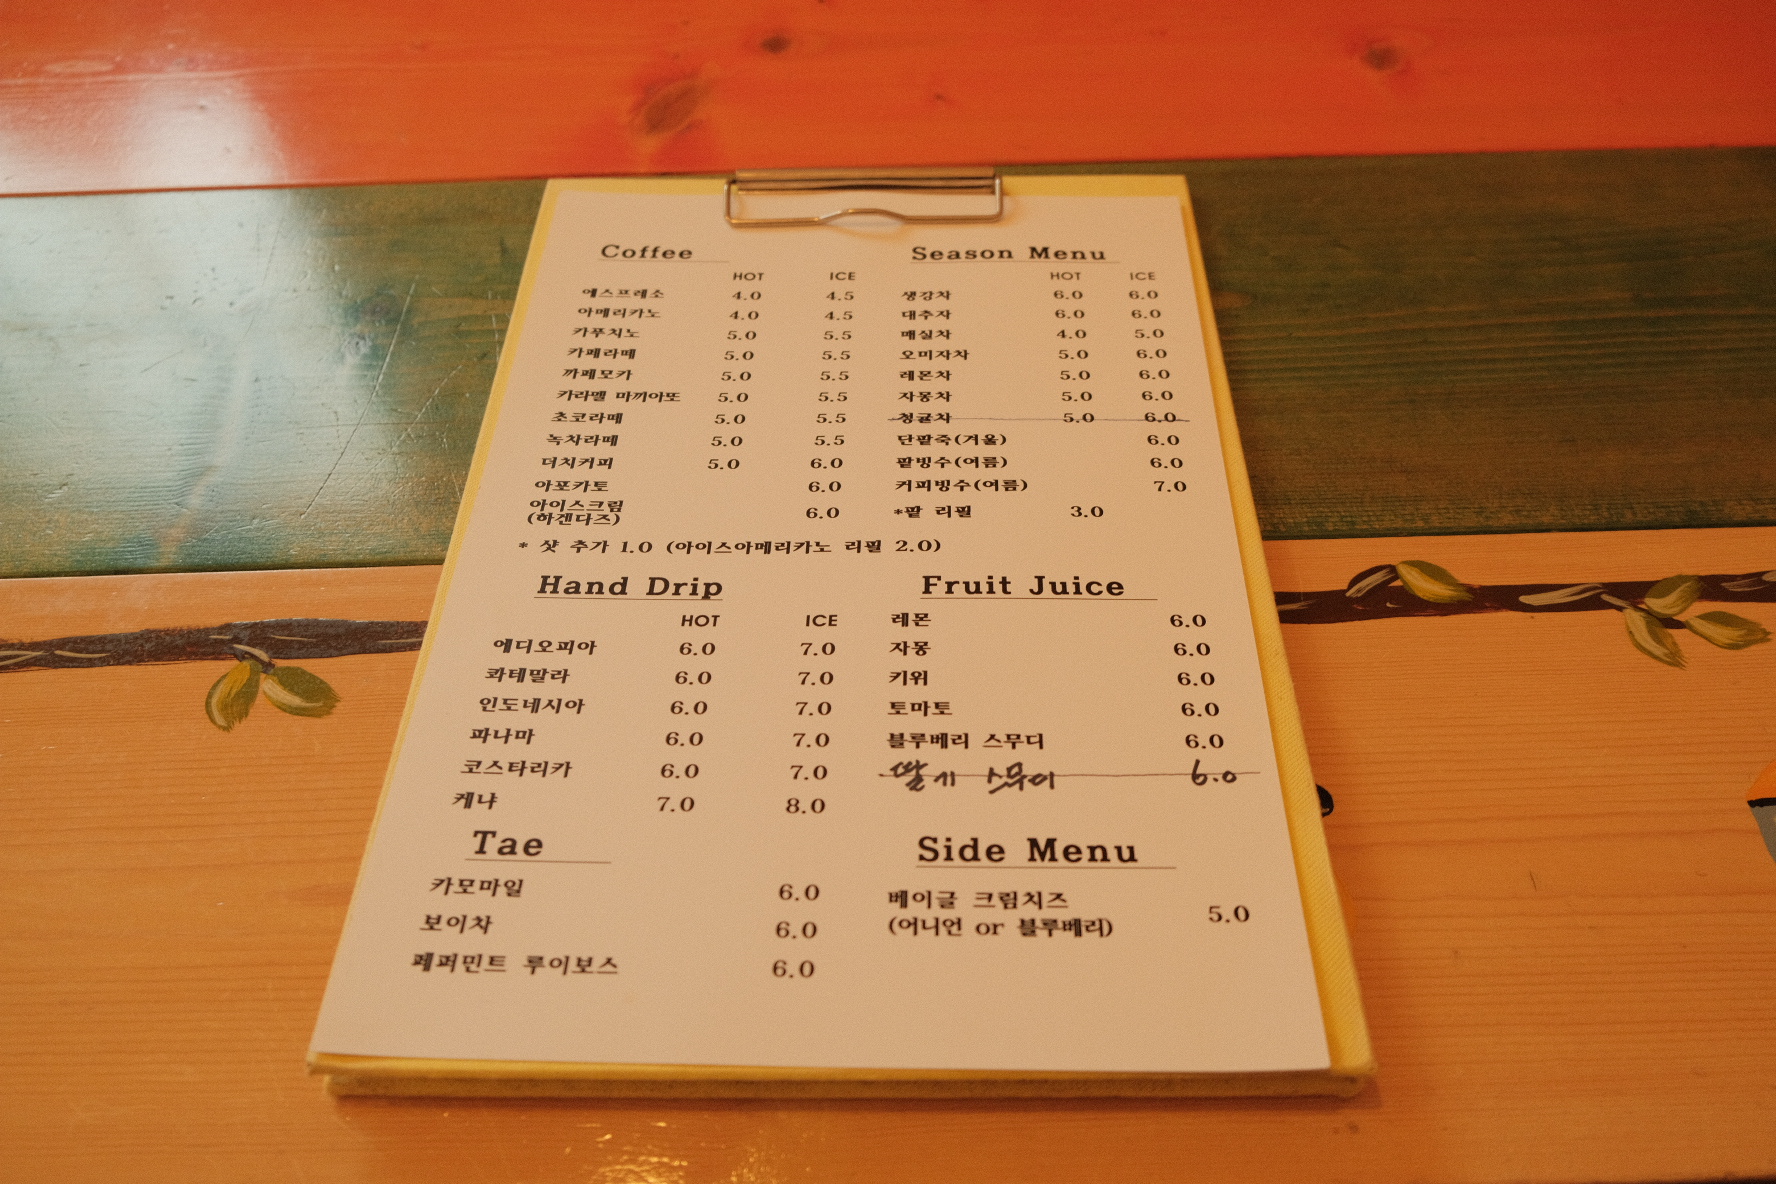 Coffee
HOT ICE
에스프레소 4.0 4.5
아메리카노 4.0 4.5
카푸치노 5.0 5.5
카페라떼 5.0 5.5
까페모카 5.0 5.5
카라멜 마끼아또 5.0 5.5
초코라떼 5.0 5.5
녹차라떼 5.0 5.5
더치커피 5.0 6.0
아포카토 6.0
아이스크림
(하겐다즈) 6.0
* 샷 추가 1.0 (아이스아메리카노 리필 2.0)
Season Menu
HOT ICE
생강차 6.0 6.0
대추자 6.0 6.0
매실차 4.0 5.0
오미자차 5.0 6.0
레몬차 5.0 6.0
자몽차 5.0 6.0
청귤차 5.0 6.0
단팥죽(겨울) 6.0
팥빙수(여름) 6.0
커피빙수(여름) 7.0
*팥 리필 3.0
Hand Drip
HOT ICE
에디오피아 6.0 7.0
콰테말라 6.0 7.0
인도네시아 6.0 7.0
파나마 6.0 7.0
코스타리카 6.0 7.0
케냐 7.0 8.0
Fruit Juice
레몬 6.0
자몽 6.0
키위 6.0
토마토 6.0
블루베리 스무디 6.0
딸기 스무디 6.0
Tae
카모마일 6.0
보이차 6.0
페퍼민트 루이보스 6.0
Side Menu
베이글 크림치즈
(어니언 or 블루베리) 5.0